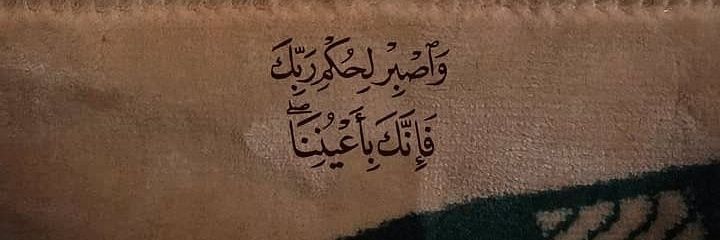 وَٱصْبِرْ لِحُكْمِ رَبِّكَ
فَإِنَّكَ بِأَعْيُنِنَاۖ